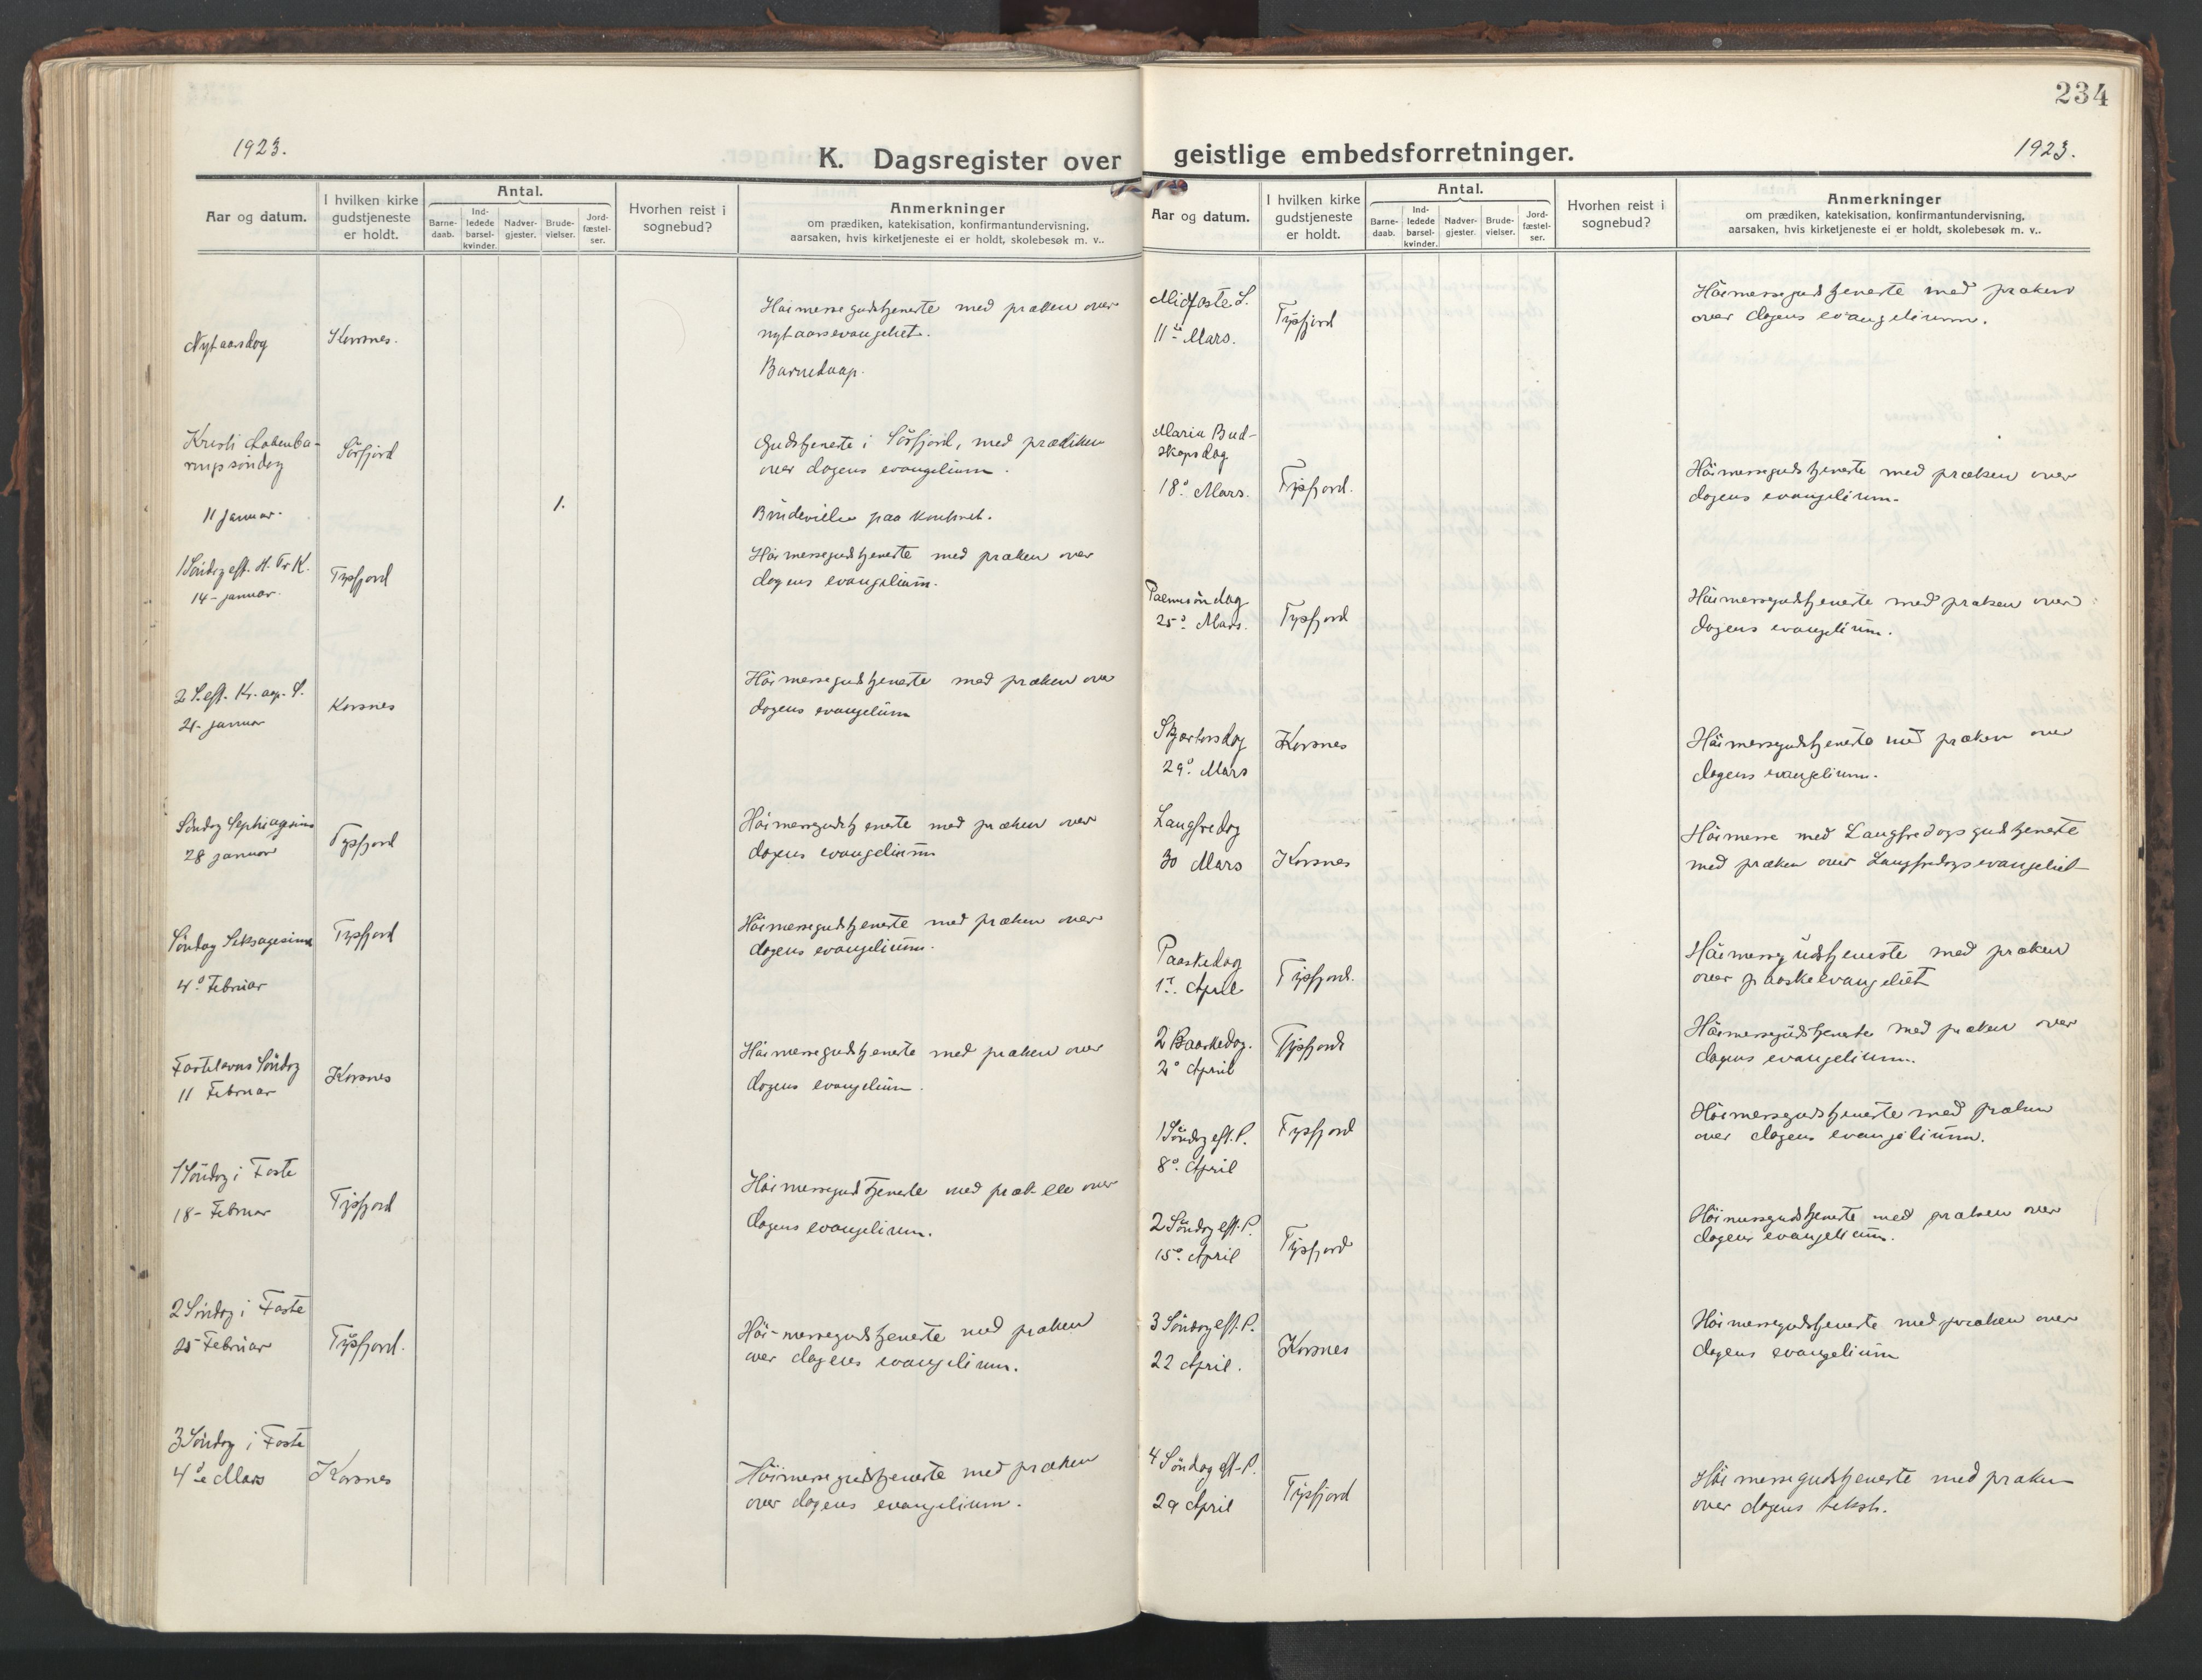 234
1923.
K. Dagsregister over
Aar og datum.
I hvilken kirke
gudstjeneste
er holdt.
Antal.
Barne-
daab.
Ind-
ledede
barsel-
kvinder.
Nadver-
gjester.
Brude-
vielser.
Jord-
fæstel-
ser.
Hvorhen reist i
sognebud?
Anmerkninger
om prædiken, katekisation, konfirmantundervisning,
aarsaken, hvis kirketjeneste ei er holdt, skolebesøk m. v..
Nytaarsdag
Korsnes.
Høimessegudstjeneste med præken over
nytaarsevangeliet.
Barnedaap.
Kristi Aabenba-
ringssöndag
Sörfjord
Gudstjeneste i Sörfjord, med prædiken
over dagens evangelium.
11 Januar.
1.
Brudevielse paa kontoret.
1 Söndag eft. H. Tr K.
14- januar.
Tysfjord
Höimessegudstjeneste med præken over
dagens evangelium.
2 S. eft. Kr. aap. S.
21- januar
Korsnes
Höimessegudstjeneste med præken over
dagens evangelium
Söndag Septuagesima
28 januar
Tysfjord
Höimessegudstjeneste med præken over
dagens evangelium
Söndag Seksagesima
4de Februar
Tysfjord
Höimessegudstjeneste med præken over
dagens evangelium.
Fastelavns Söndag
11 Februar
Korsnes
Höimessegudstjeneste med præken over
dagens evangelium.
1 Söndag i Faste
18- Februar
Tysfjord
Höimessegudstjeneste med præken over
dagens evangelium.
2 Söndag i Faste
25 Februar
Tysfjord.
Höi-messegudstjeneste med præken
over dagens evangelium.
3 Söndag i Faste
4de Mars
Korsnes
Höimessegudstjeneste med præken
over dagens evangelium.
geistlige embedsforretninger.
1923.
Aar og datum.
I hvilken kirke
gudstjeneste
er holdt.
Antal.
Barne-
daab.
Ind-
ledede
barsel-
kvinder.
Nadver-
gjester.
Brude-
vielser.
Jord-
fæstel-
ser.
Hvorhen reist i
sognebud?
Anmerkninger
om prædiken, katekisation, konfirmantundervisning,
aarsaken, hvis kirketjeneste ei er holdt, skolebesøk m. v..
Midfaste S.
11te Mars.
Tysfjord
Höimessegudstjeneste med præken
over dagens evangelium.
Maria Bud-
skapsdag
18de Mars.
Tysfjord.
Höimessegudstjeneste med præken over
dagens evangelium.
Palmesöndag
25de Mars.
Tysfjord
Höimessegudstjeneste med præken over
dagens evangelium.
Skjærtorsdag
29de Mars
Korsnes
Höimessegudstjeneste med præken over
dagens evangelium.
Langfredag
30 Mars
Korsnes
Höimesse med Langfredagsgudstjeneste
med præken over Langfredagsevangeliet
Paaskedag
1ste April
Tysfjord.
Höimessegudstjeneste med præken
over paaskeevangeliet
2 Paaskedag.
2de April
Tysfjord
Höimessegudstjeneste med præken over
dagens evangelium.
1 Söndag eft. P.
8de April
Tysfjord
Höimessegudstjeneste med præken
over dagens evangelium.
2 Söndag eft. P.
15de April
Tysfjord
Höimessegudstjeneste med præken over
dagens evangelium.
3 Söndag eft. P.
22 April.
Korsnes
Höimessegudstjeneste med præken over
dagens evangelium
4 Söndag eft. P.
29 April
Tysfjord
Höimessegudstjeneste med præken
over dagens tekst.